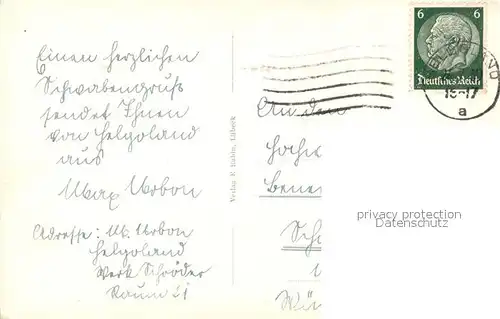 Einen herzlichen
Schwabengruß
sendet Ihnen
von Helgoland
aus
Max Urbon
Adresse: M. Urbon
Helgoland
Werk Schröder
Raum 21
Verlag E. Hahln, Lübeck
6 6
Deutsches Reich
15-17
a
An den
privacy protection
Datenschutz